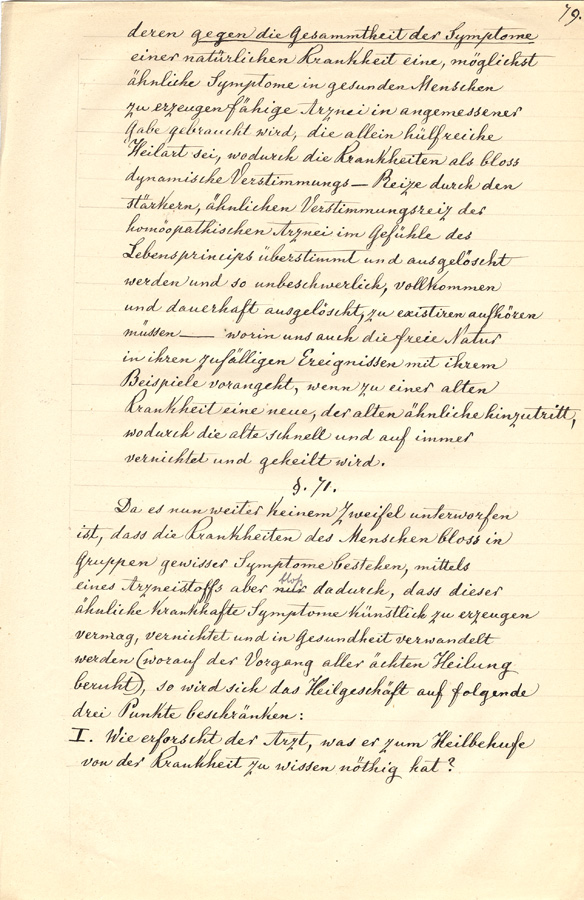 79.
deren gegen die Gesammtheit der Symptome
einer natürlichen Krankheit eine, möglichst
ähnliche Symptome in gesunden Menschen
zu erzeugen fähige Arznei in angemessener
Gabe gebraucht wird, die allein hülfreiche
Heilart sei, wodurch die Krankheiten als bloss
dynamische Verstimmungs – Reize durch den
stärkern, ähnlichen Verstimmungsreiz der
homöopathischen Arznei im Gefühle des
Lebensprincips überstimmt und ausgelöscht
werden und so unbeschwerlich, vollkommen
und dauerhaft ausgelöscht, zu existiren aufhören
müssen — worin uns auch die freie Natur
in ihren zufälligen Ereignissen mit ihrem
Beispiele vorangeht, wenn zu einer alten
Krankheit eine neue, der alten ähnliche hinzutritt,
wodurch die alte schnell und auf immer
vernichtet und geheilt wird.
§. 71.
Da es nun weiter keinem Zweifel unterworfen
ist, dass die Krankheiten des Menschen bloss in
Gruppen gewisser Symptome bestehen, mittels
bloß
eines Arzneistoffs aber nur dadurch, dass dieser
ähnliche krankhafte Symptome künstlich zu erzeugen
vermag, vernichtet und in Gesundheit verwandelt
werden (worauf der Vorgang aller ächten Heilung
beruht), so wird sich das Heilgeschäft auf folgende
drei Punkte beschränken:
I. Wie erforscht der Arzt, was er zum Heilbehufe
von der Krankheit zu wissen nöthig hat?